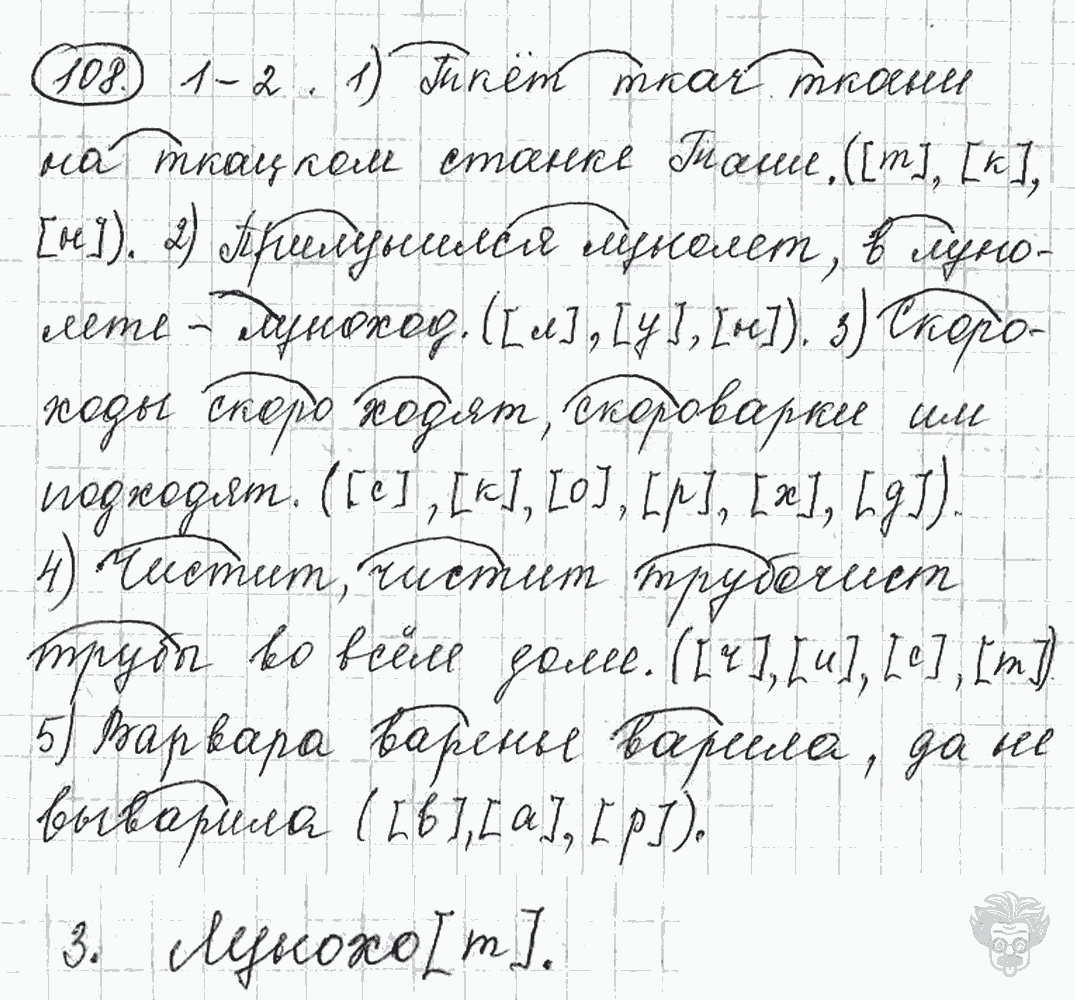 108. 1-2. 1) Ткёт ткач ткани
на ткацком станке Тани. ([т], [к],
[н]). 2) Прилунился лунолет, в луно-
лете - луноход. ([л], [у], [н]). 3) Скоро-
ходы скоро ходят, скороварки им
подходят. ([с], [к], [о], [р], [х], [д]).
4) Чистит, чистит трубочист
трубы во всём доме. ([ч], [и], [с], [т])
5) Варвара варенье варила, да не
выварила ([в], [а], [р]).
3. Лунохо[т].